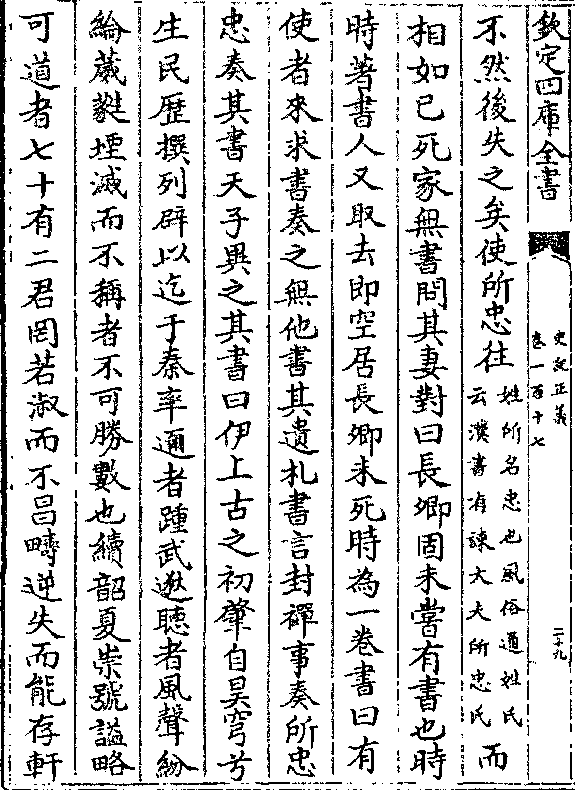 欽定四庫全書
史記正義
卷一百十七
二十九
不然後失之矣使所忠往
姓所名忠也風俗通姓氏
云漢書有諫大夫所忠氏
而
相如已死家無書問其妻對曰長卿固未嘗有書也時
時著書人又取去即空居長卿未死時為一卷書曰有
使者來求書奏之無他書其遺札書言封禪事奏所忠
忠奏其書天子異之其書曰伊上古之初肇自昊穹兮
生民歷撰列辟以迄于秦率邇者踵武逖聽者風聲紛
綸葳蕤堙滅而不稱者不可勝數也續韶夏崇號諡略
可道者七十有二君罔若淑而不昌疇逆失而能存軒